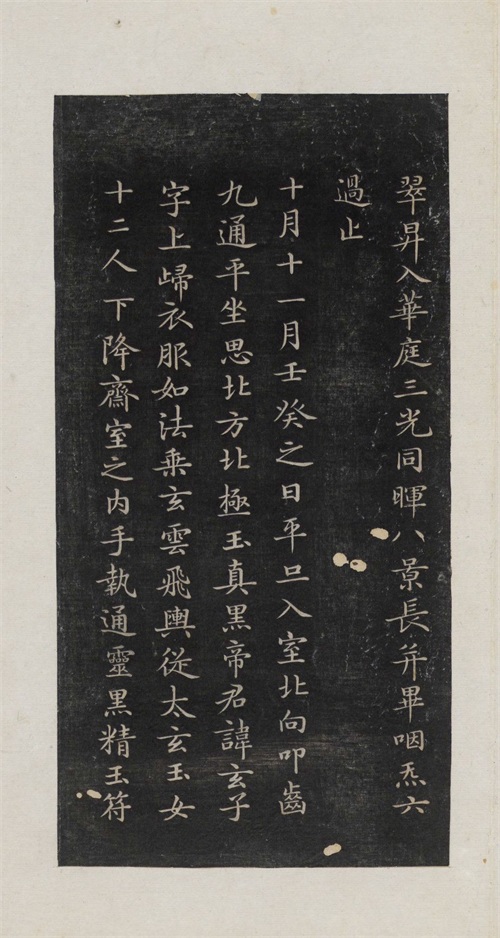 翠昇入華庭三光同暉八景長并畢咽炁六
過止
十月十一月壬癸之日平旦入室北向叩齒
九通平坐思北方北極玉真黒帝君諱玄子
字上歸衣服如法乗玄雲飛輿従太玄玉女
十二人下降齋室之内手執通靈黒精玉符